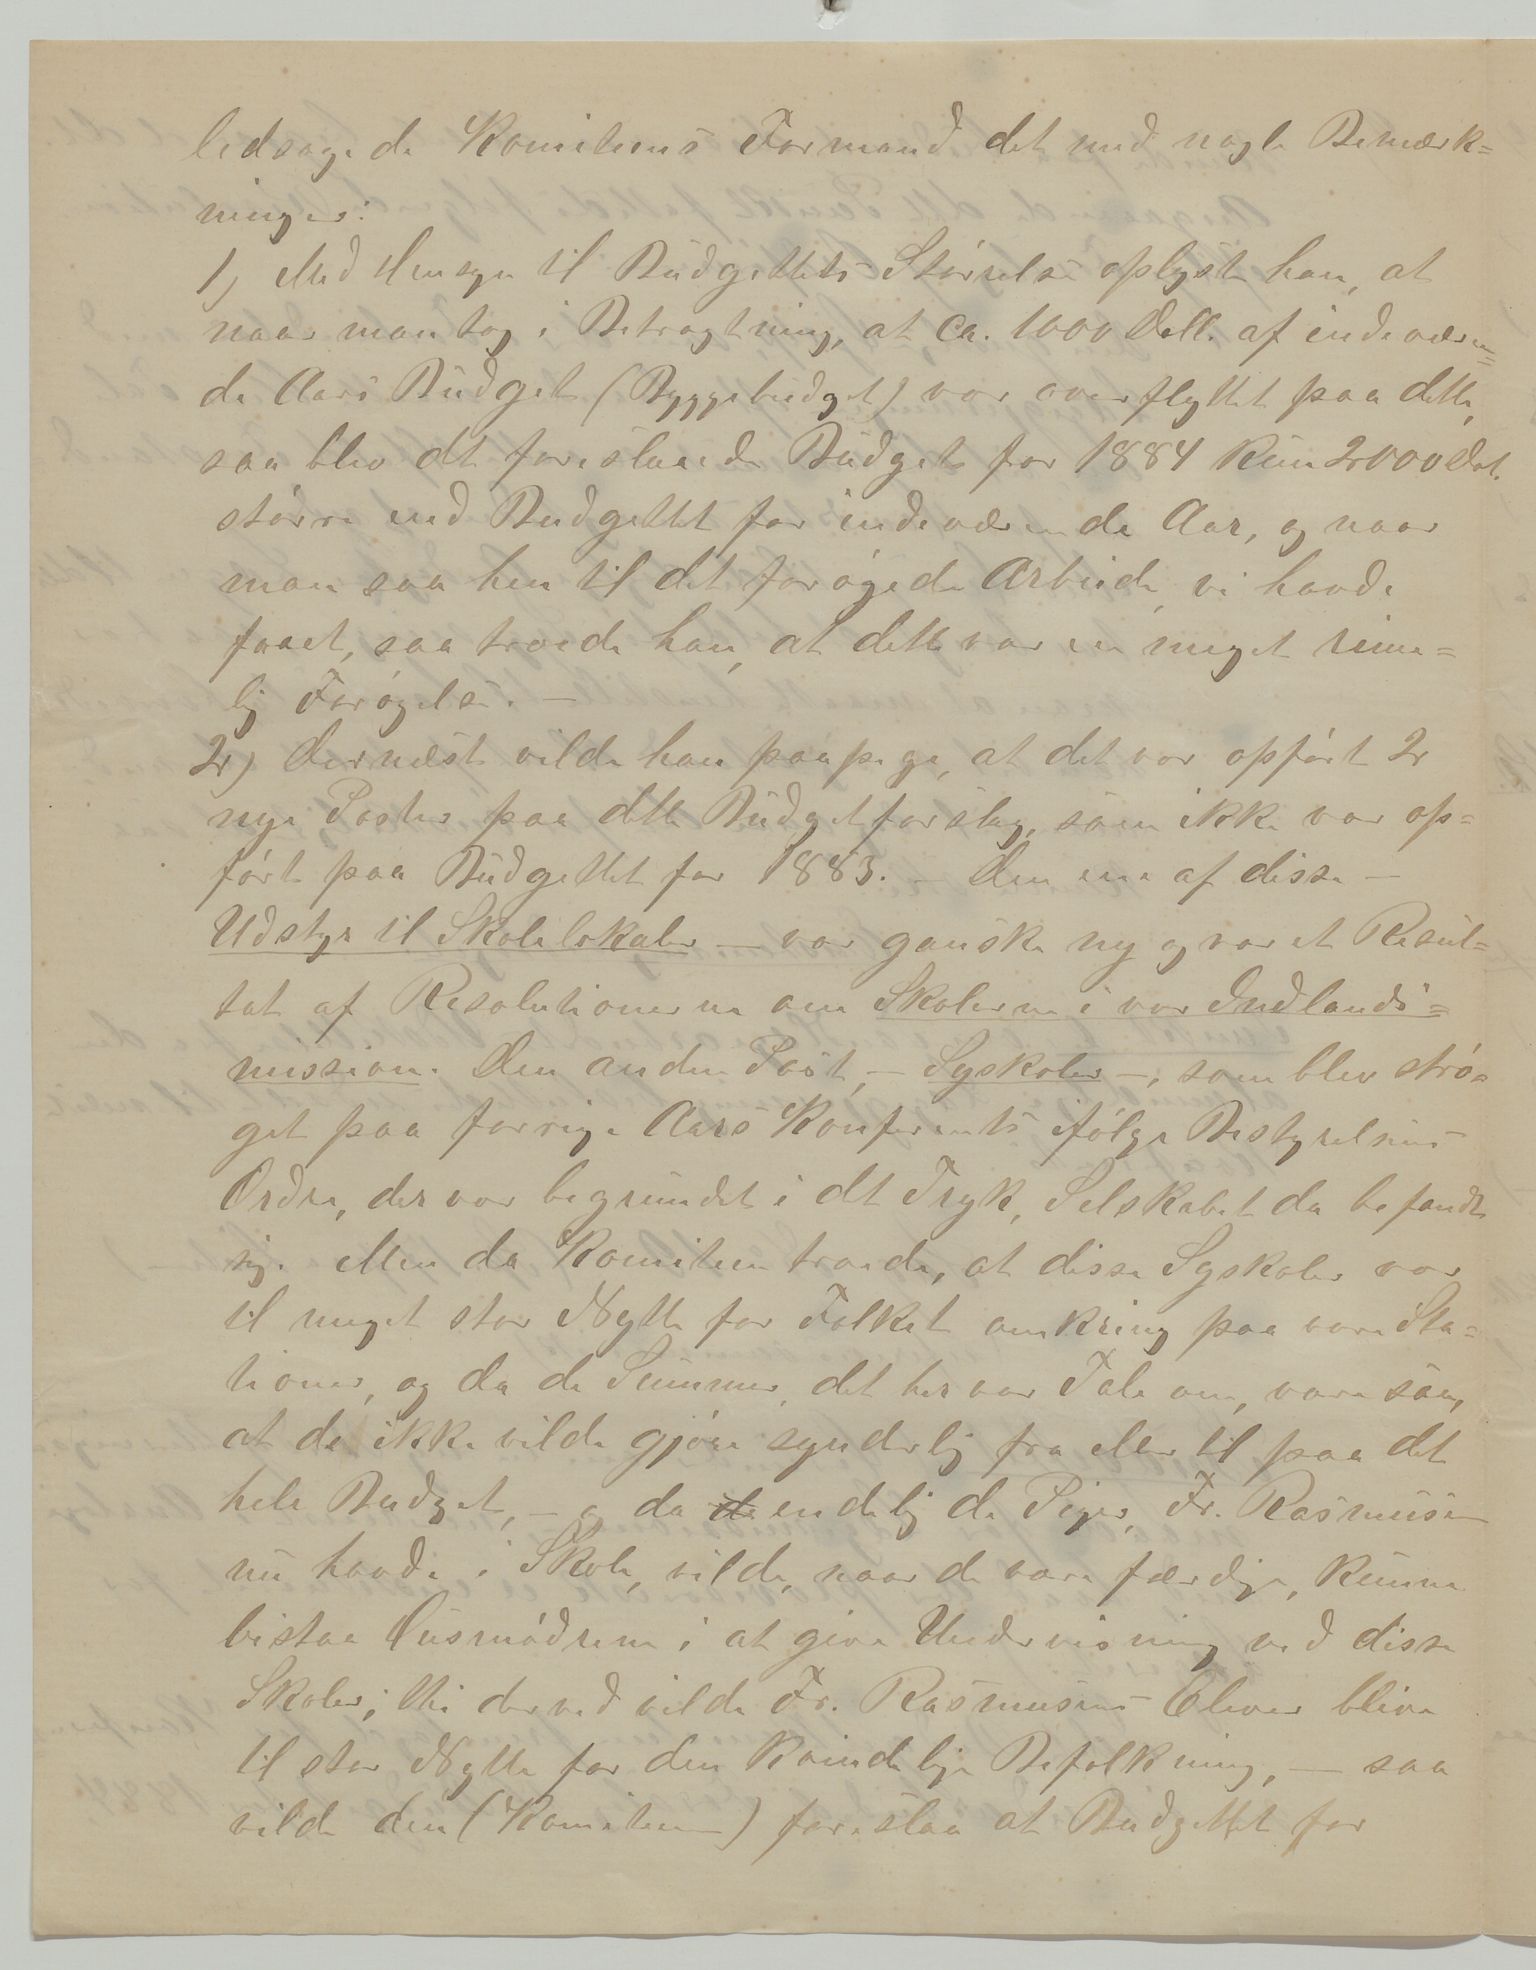 ledsagede Komiteens Formand det med nogle Bemærk=
ninger:
1) Med Hensyn til Budgettets Størrelse oplyste han, at
naar man tog i Betragtning, at ca. 1000 Doll. af indeværen=
de Aars Budget (Byggebudget) var overflyttet paa dette,
saa blev det foreslaaede Budget for 1884 kun 2000 Dol.
større end Budgettet for indeværende Aar, og naar
man saa hen til det forøgede Arbeide, vi havde
faaet, saa troede han, at dette var en meget rime=
lig Forøgelse. —
2) Dernæst vilde han paapege, at det var opført 2
nye Poster paa dette Budgetforslag, som ikke var op=
ført paa Budgettet for 1883. — Den ene af disse —
Udstyr til Skolelokaler — var ganske ny og var et Resul=
tat af Resolutionerne om Skolerne i vor Indlands=
mission. Den anden Post, — Syskoler —, som blev strø=
get paa forrige Aars Konferents ifølge Bestyrelsens
Ordre, der var begrundet i det Tryk, Selskabet da befandt
sig. Men da Komiteen troede, at disse Syskoler var
til meget stor Nytte for Folket omkring paa vore Sta=
tioner, og da de Summer, det her var Tale om, vare saa,
at de ikke vilde gjøre synderlig fra eller til paa det
hele Budget, — og da de endelig de Piger, Fr. Rasmussen
nu havde i Skole, vilde, naar de vare færdige, kunne
bistaa Husmødrene i at give Undervisning ved disse
Skoler; thi derved vilde Fr. Rasmusens Elever blive
til stor Nytte for den kvindelige Befolkning, — saa
vilde den (Komiteen) foreslaa at Budgettet for